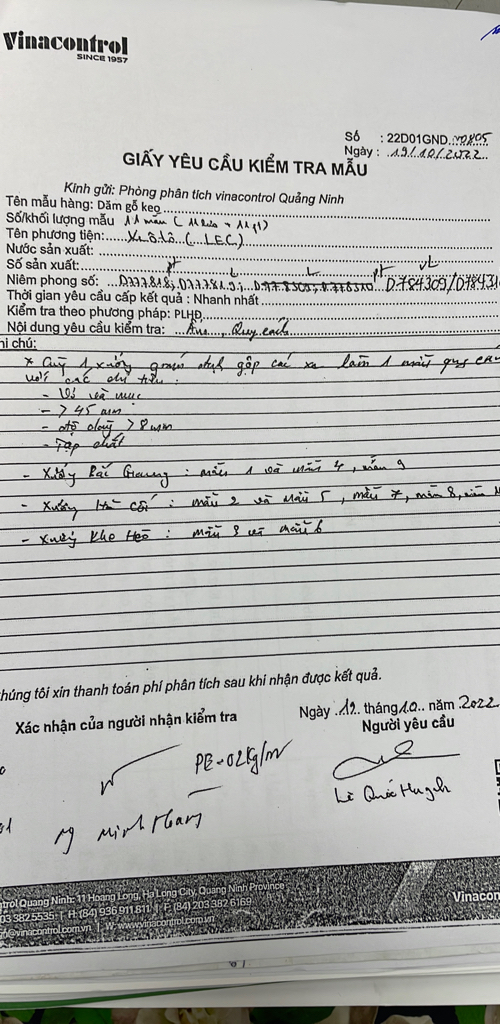 Vinacontrol
SINCE 1957
Số : 22D01GND
Ngày : 19/10/2022
GIẤY YÊU CẦU KIỂM TRA MẪU
Kính gửi: Phòng phân tích vinacontrol Quảng Ninh
Tên mẫu hàng: Dăm gỗ keo
Số/khối lượng mẫu 11 mẫu
Tên phương tiện: Xe ô tô (LEC)
Nước sản xuất:
Số sản xuất:
Niêm phong số: D784309/D78431
Thời gian yêu cầu cấp kết quả : Nhanh nhất
Kiểm tra theo phương pháp: PLHĐ
Nội dung yêu cầu kiểm tra: Ẩm, Quy cách
hi chú:
* Cùng 1 xưởng giám định gộp các xe làm 1 mẫu quy cách
với các chỉ tiêu:
- Vỏ và mục
- > 45 mm
- Độ dày > 8 mm
- Tạp chất
- Xưởng Bắc Giang : mẫu 1 và mẫu 4, mẫu 9
- Xưởng Hà Cối : mẫu 2 và mẫu 5, mẫu 7, mẫu 8, mẫu
- Xưởng Kho Heo : mẫu 3 và mẫu 6
húng tôi xin thanh toán phí phân tích sau khi nhận được kết quả.
Ngày 19 tháng 10 năm 2022
Xác nhận của người nhận kiểm tra
Người yêu cầu
PE-02Kg/m
Lê Quốc Huynh
Ng Minh
trol Quang Ninh: 11 Hoang Long, Ha Long City, Quang Ninh Province
03 3825535 | H: (84) 936 911 811 | F: (84) 203 382 6169
@vinacontrol.com.vn | W: www.vinacontrol.com.vn
Vinacon